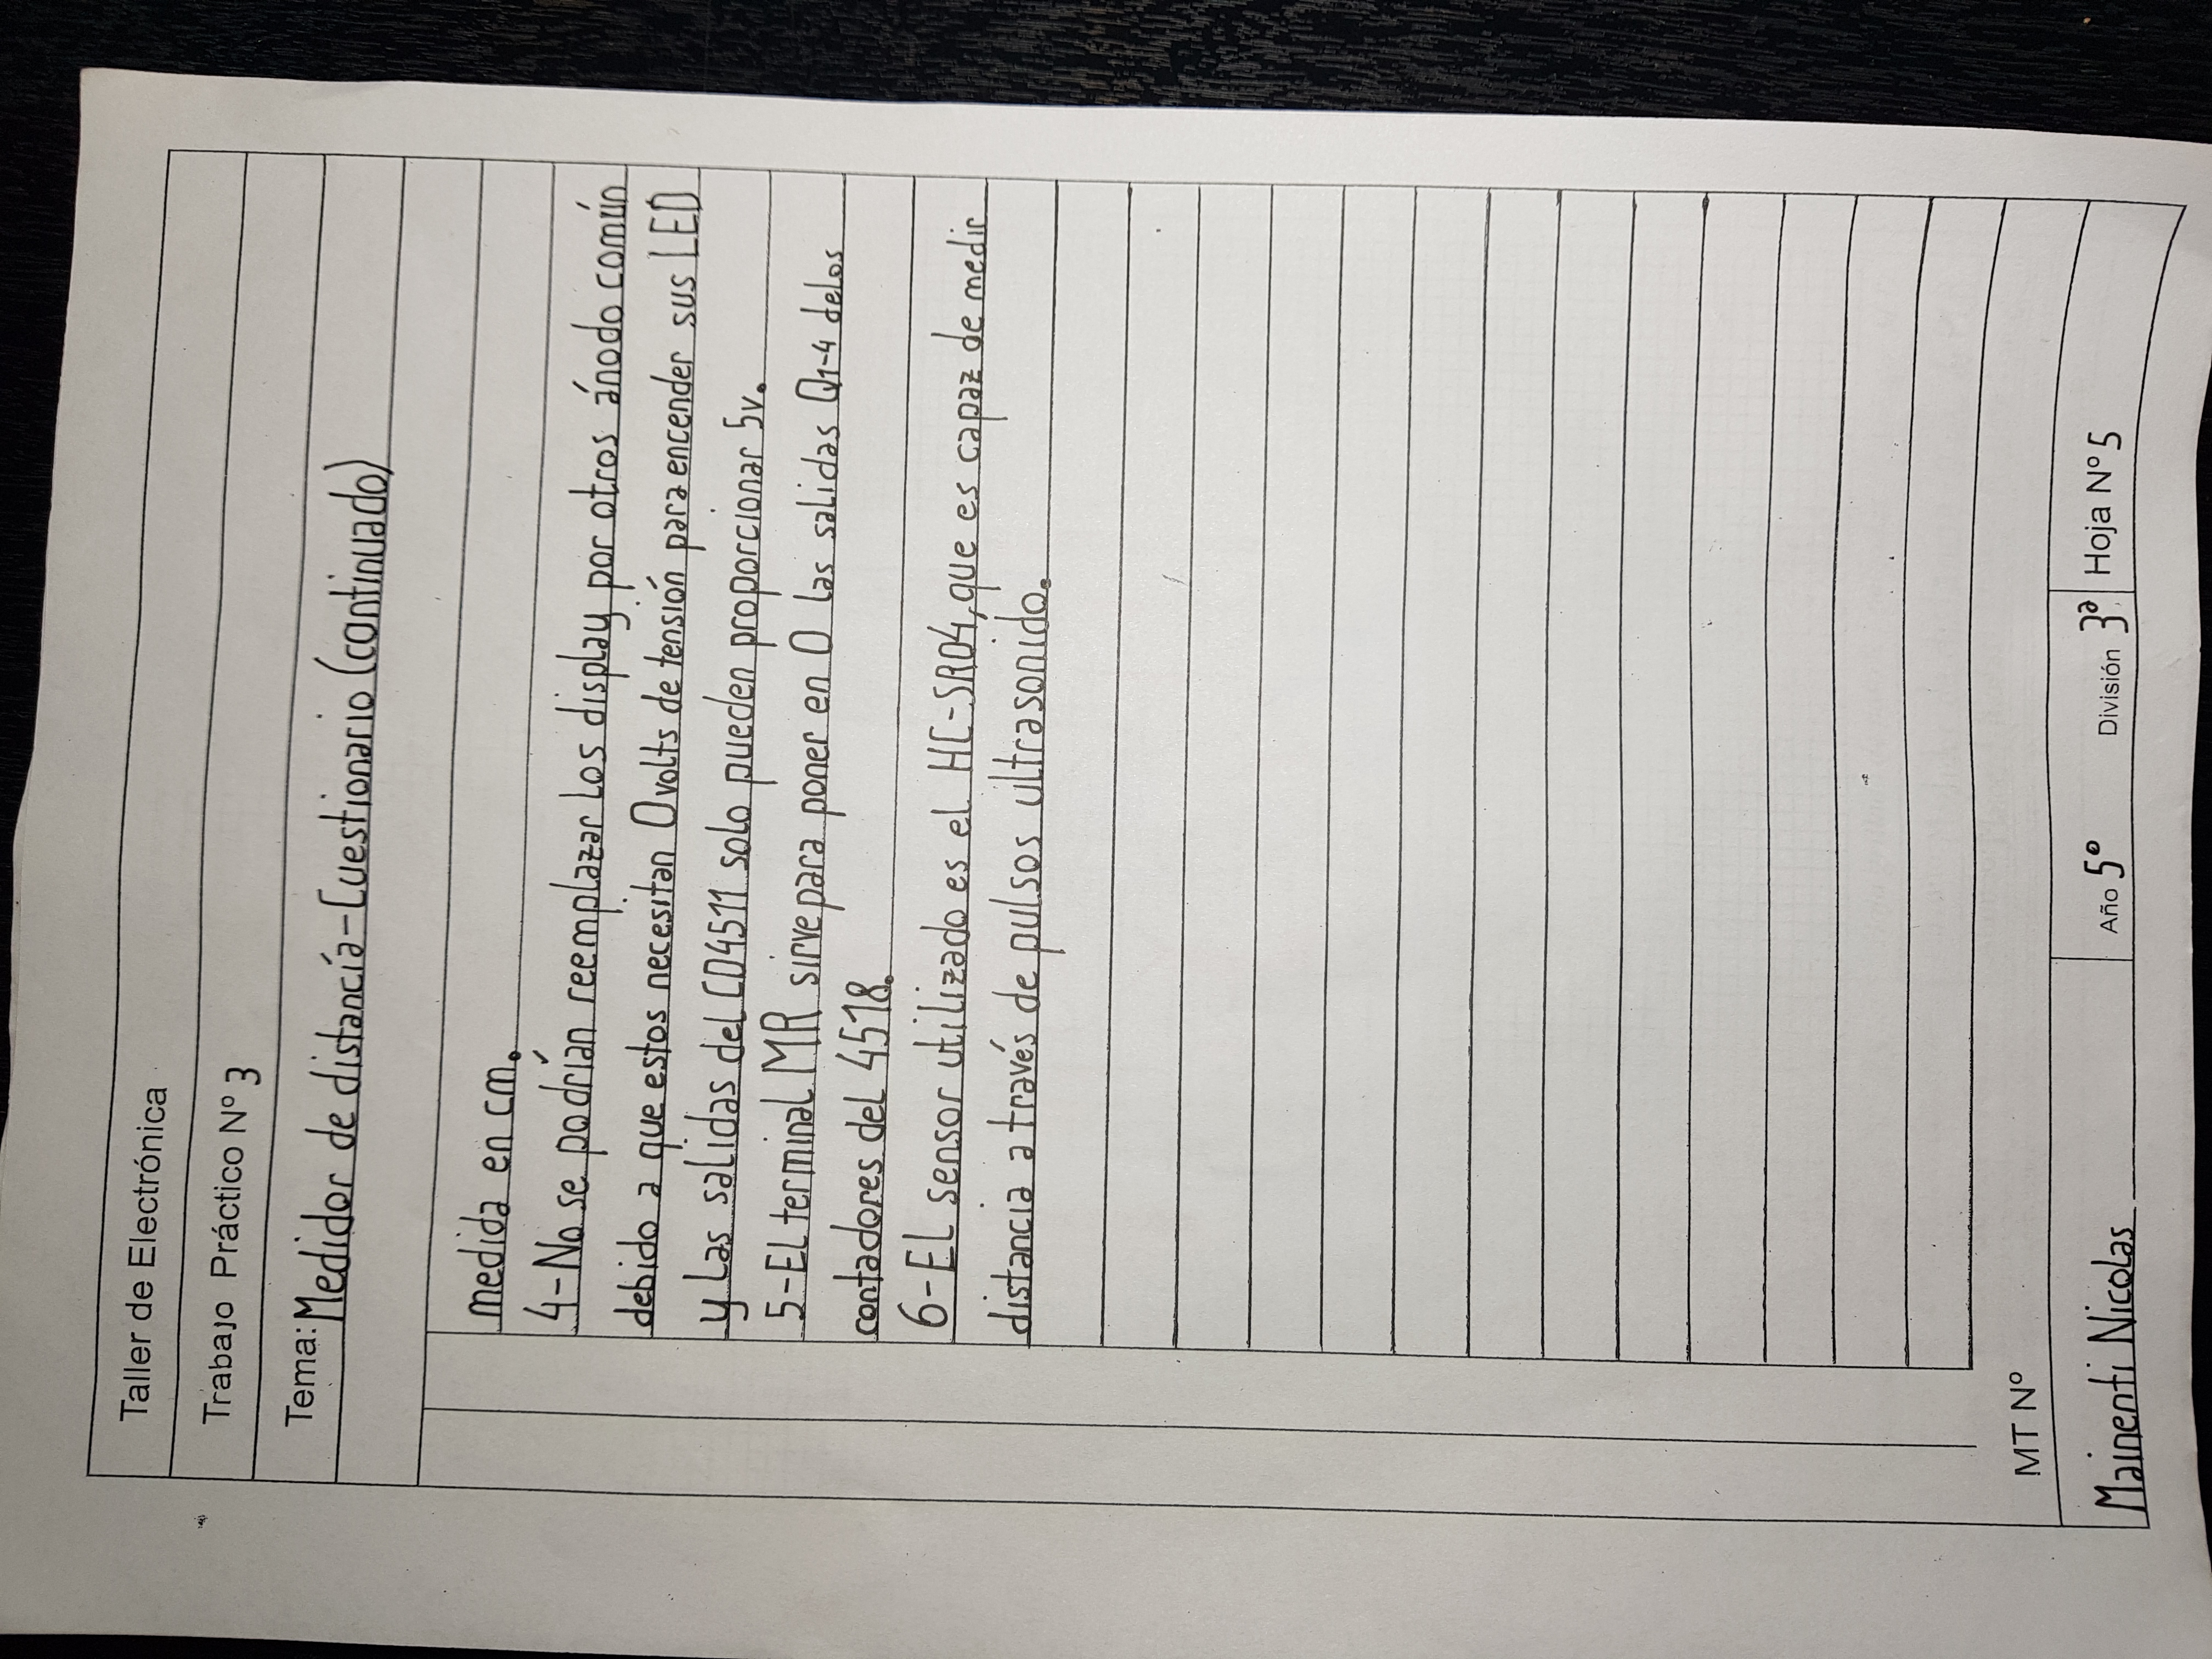 Taller de Electrónica
Trabajo Práctico Nº 3
Tema: Medidor de distancía-Cuestionario (continuado)
medida en cm.
4-No se podrían reemplazar los display por otros ánodo común
debido a que estos necesitan 0 volts de tensión para encender sus LED
y las salidas del CD4511 solo pueden proporcionar 5v.
5-El terminal MR sirve para poner en 0 las salidas Q1-4 de los
contadores del 4518.
6-El sensor utilizado es el HC-SR04, que es capaz de medir
distancia a través de pulsos ultrasonido.
MT Nº
Mainenti Nicolas Año 5º División 3ª Hoja Nº 5